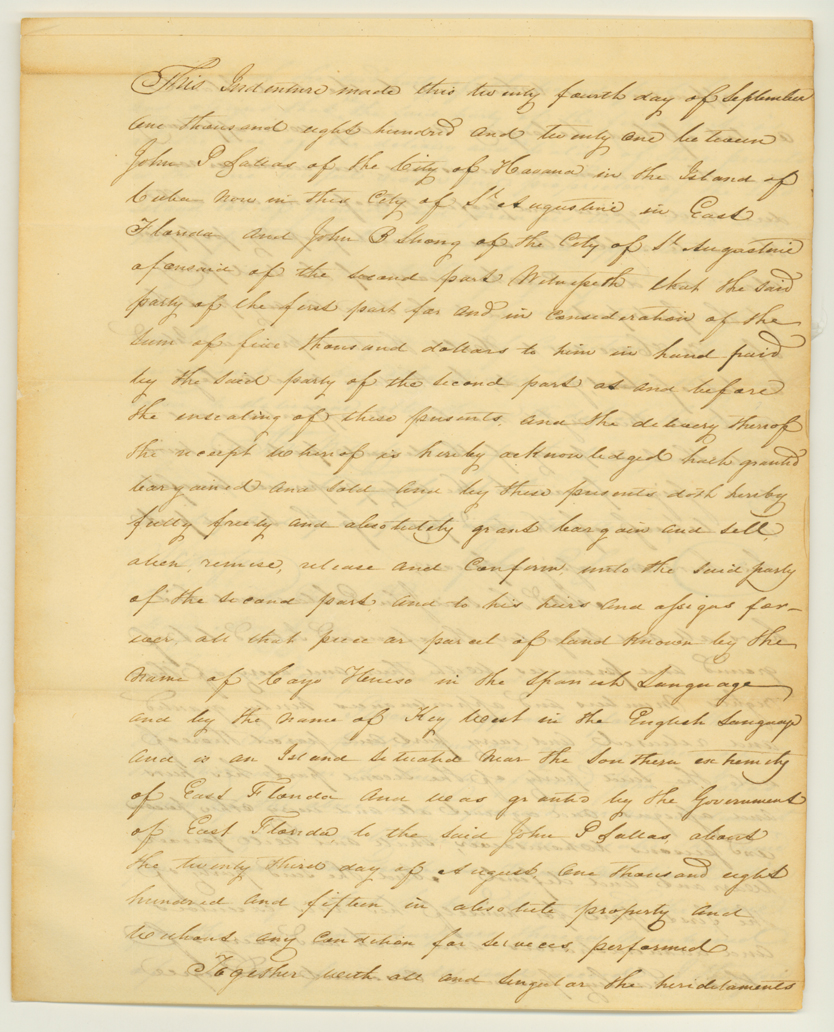 This Indenture made this twenty fourth day of September
one thousand eight hundred and twenty one between
John P Sallas of the City of Havana in the Island of
Cuba now in this City of St Augustine in East
Florida and John B Strong of the City of St Augustine
aforesaid of the second part Witnesseth that the said
party of the first part for and in consideration of the
sum of five thousand dollars to him in hand paid
by the said party of the second part at and before
the ensealing of these presents, and the delivery thereof
the receipt whereof is hereby acknowledged hath granted
bargained and sold and by these presents doth hereby
fully freely and absolutely grant bargain and sell,
alien, remise, release and Confirm, unto the said party
of the second part, and to his heirs and assigns for-
ever all that piece or parcel of land known by the
Name of Cayo Hueso in the Spanish Language
and by the name of Key West in the English Language
and is an Island situated near the Southern extremity
of East Florida and was granted by the Government
of East Florida to the said John P Sallas, about
the twenty third day of August, One thousand eight
hundred and fifteen in absolute property and
Without any Condition for services performed
Together with all and singular the heriditaments